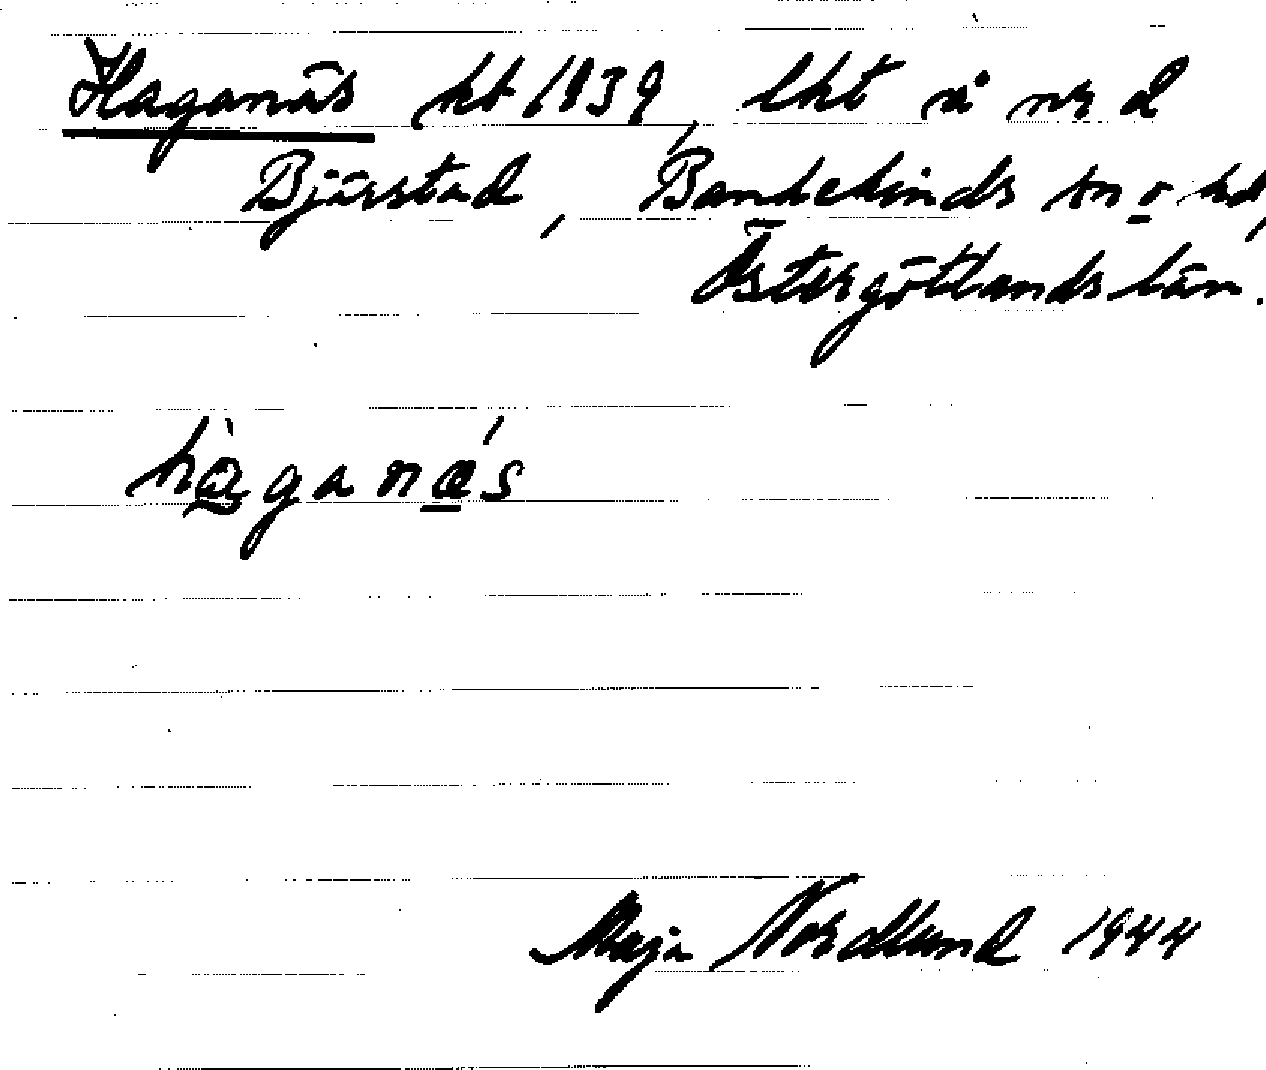 Haganäs kb 1939, lht å nr 2
Bjärstad, Bankekinds sn o hd,
Östergötlands län.
hàganǽs
Maja Nordlund 1944